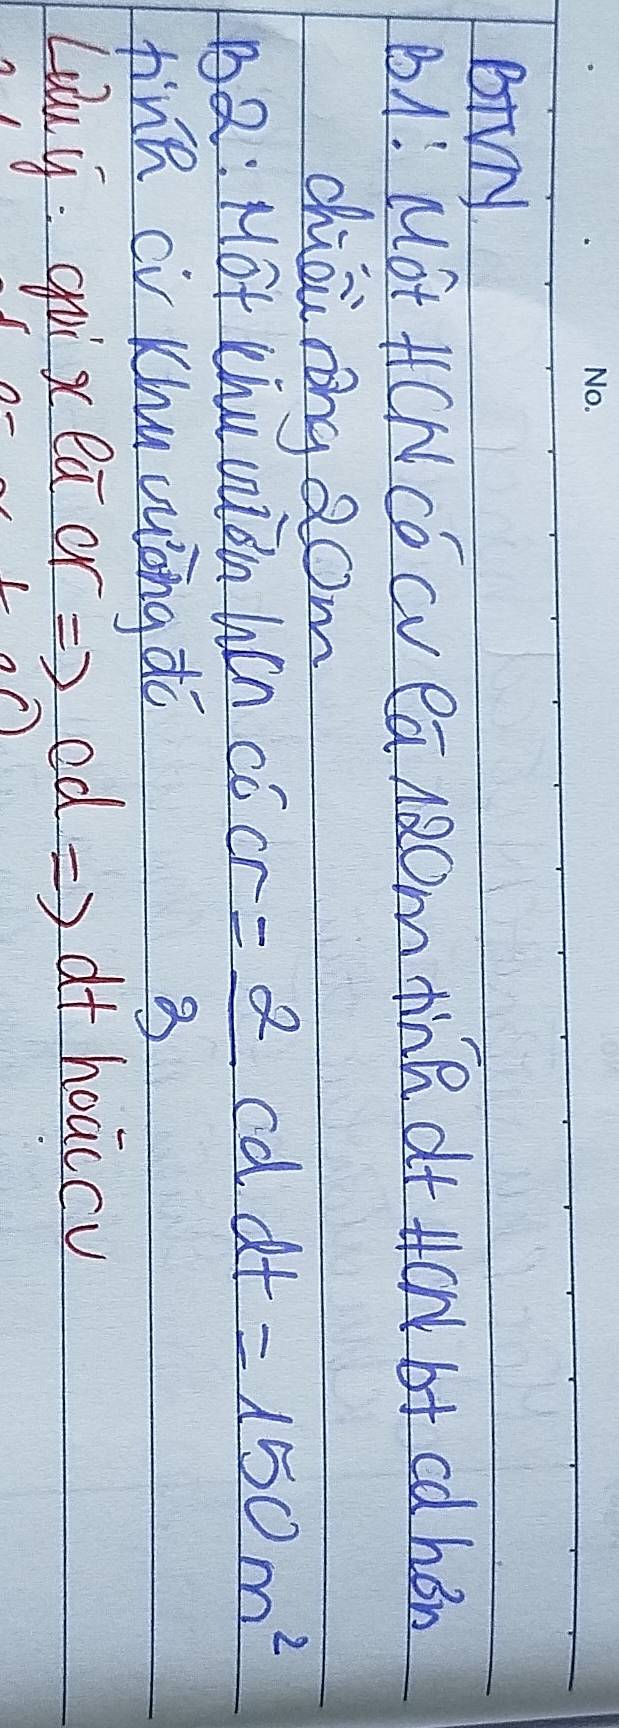 No.
BTVN
B1: Một HCN có cv là 120m tính dt HCN bt cd hơn
chiều rộng 20m
B2: Một khu vườn hcn có cr = 2/3 cd. dt = 150 m²
tính cv khu vường đó
Lưu ý: gọi x là cr => cd => dt hoặc cv